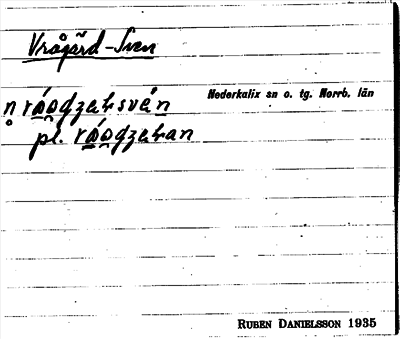 Vrågård-Sven
Nederkalix sn o. tg. Norrb. län
n råodzahsván
pl. råodzahan
RUBEN DANIELSSON 1935